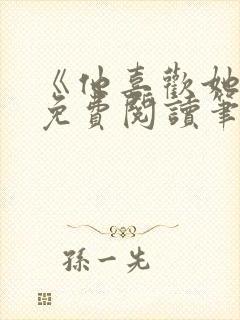 《他喜歡她
免費閱讀筆
孫一先